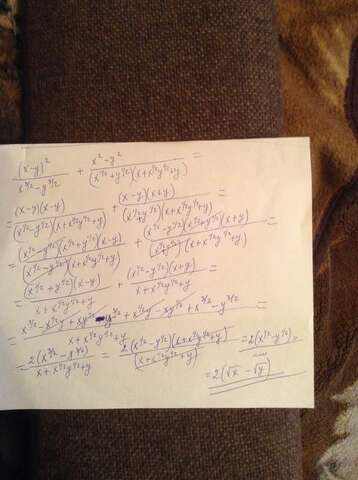 (x-y)² / (x^3/2 - y^3/2) + (x² - y²) / ((x^1/2 + y^1/2)(x + x^1/2 y^1/2 + y)) =
= (x-y)(x-y) / ((x^1/2 - y^1/2)(x + x^1/2 y^1/2 + y)) + (x-y)(x+y) / ((x^1/2 + y^1/2)(x + x^1/2 y^1/2 + y)) =
= (x^1/2 - y^1/2)(x^1/2 + y^1/2)(x-y) / ((x^1/2 - y^1/2)(x + x^1/2 y^1/2 + y)) + (x^1/2 - y^1/2)(x^1/2 + y^1/2)(x+y) / ((x^1/2 + y^1/2)(x + x^1/2 y^1/2 + y)) =
= (x^1/2 + y^1/2)(x-y) / (x + x^1/2 y^1/2 + y) + (x^1/2 - y^1/2)(x+y) / (x + x^1/2 y^1/2 + y) =
= (x^3/2 - x^1/2 y + xy^1/2 - y^3/2 + x^1/2 y - xy^1/2 + x^3/2 - y^3/2) / (x + x^1/2 y^1/2 + y) =
= 2(x^3/2 - y^3/2) / (x + x^1/2 y^1/2 + y) = 2(x^1/2 - y^1/2)(x + x^1/2 y^1/2 + y) / (x + x^1/2 y^1/2 + y) = 2(x^1/2 - y^1/2) =
= 2(√x - √y)